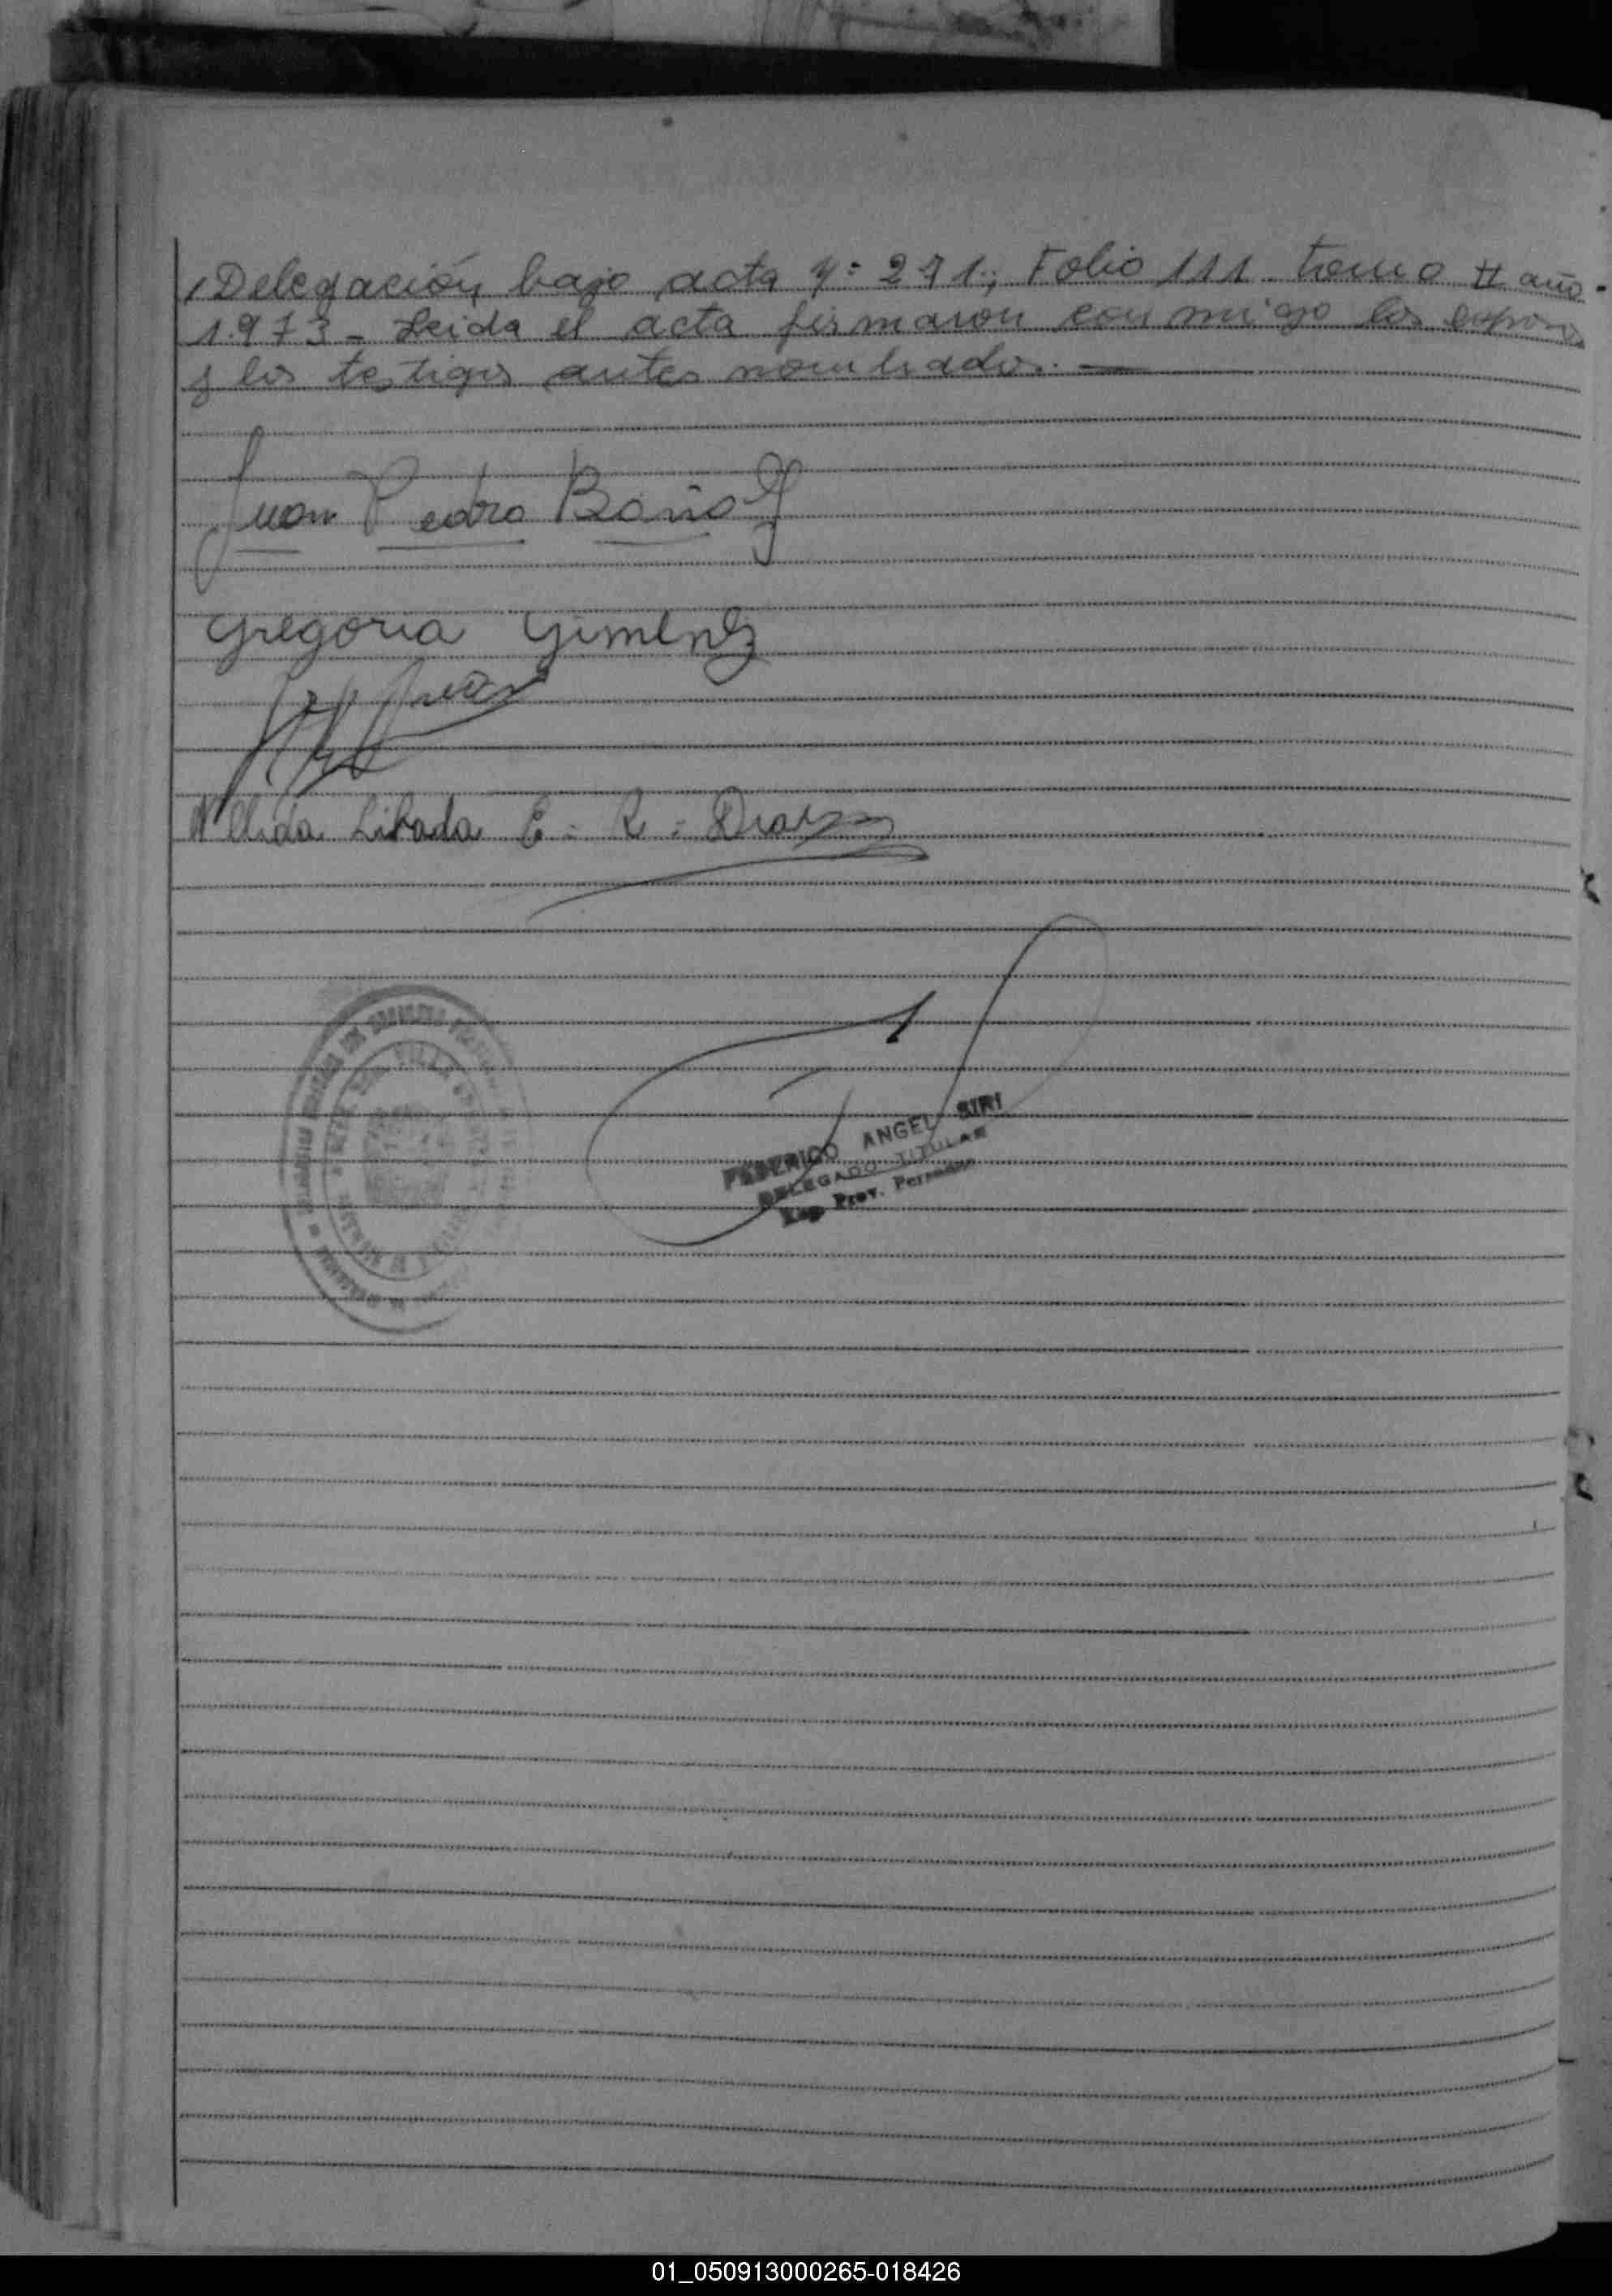 Delegación bajo acta Nº 271; Folio 111 tomo II año
1.973 - Leida el acta firmaron conmigo los esposos
y los testigos antes nombrados.
Juan Pedro
Gregoria Gimenez
Nelida Libada E. R. Diaz
FEDERICO ANGEL SIRI
DELEGADO TITULAR
Reg. Prov. Personas
01_050913000265-018426